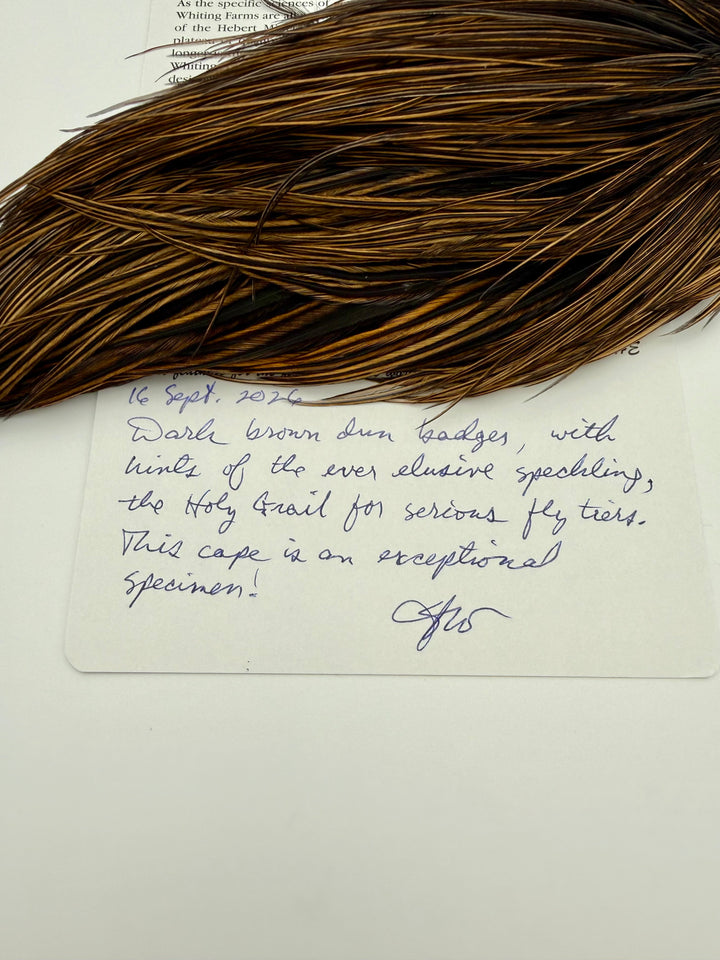 As the specific sciences of
Whiting Farms are
of the Hebert
longer
Whiting
16 Sept. 2024
Dark brown dun badges, with
hints of the ever elusive speckling,
the Holy Grail for serious fly tiers.
This cape is an exceptional
specimen!